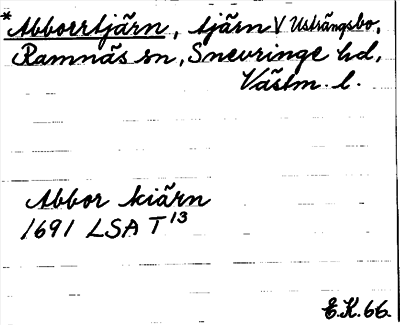 *Abborrtjärn, tjärn V Usträngsbo,
Ramnäs sn, Snevringe hd,
Västm. l.
Abbor kiärn
1691 LSA T 13
E.K. 66.